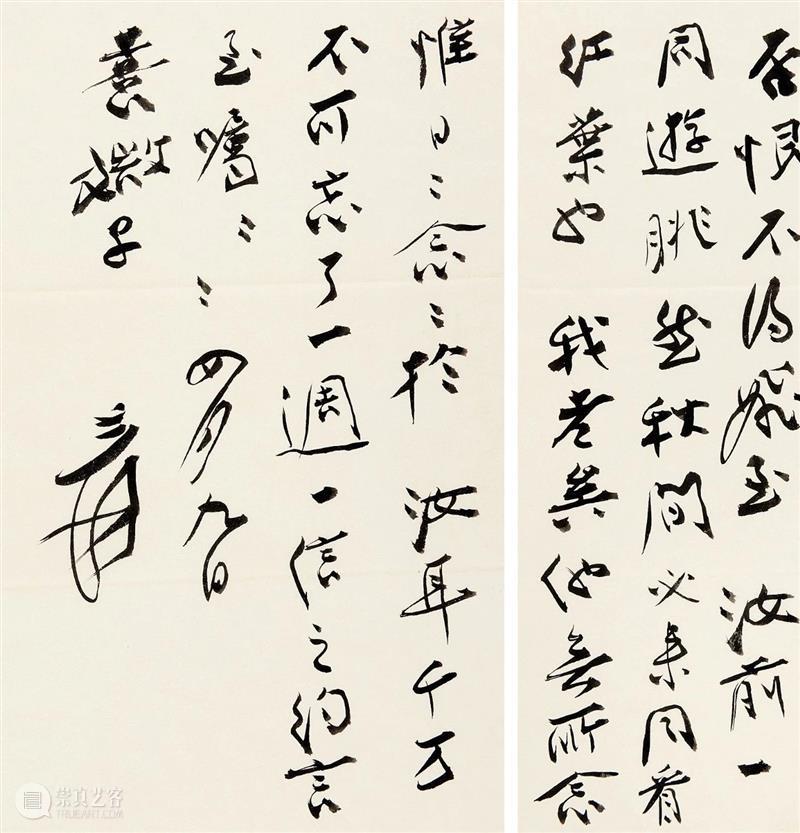 否恨不得飛至 汝前一
同遊眺然秋間必来同看
紅葉也 我老矣他無所念
惟日〻念〻於 汝耳千万
不可忘了一週一信之約言
至囑〻〻 四月九日
喜微子 爰
崇真艺客
TRUEART.COM